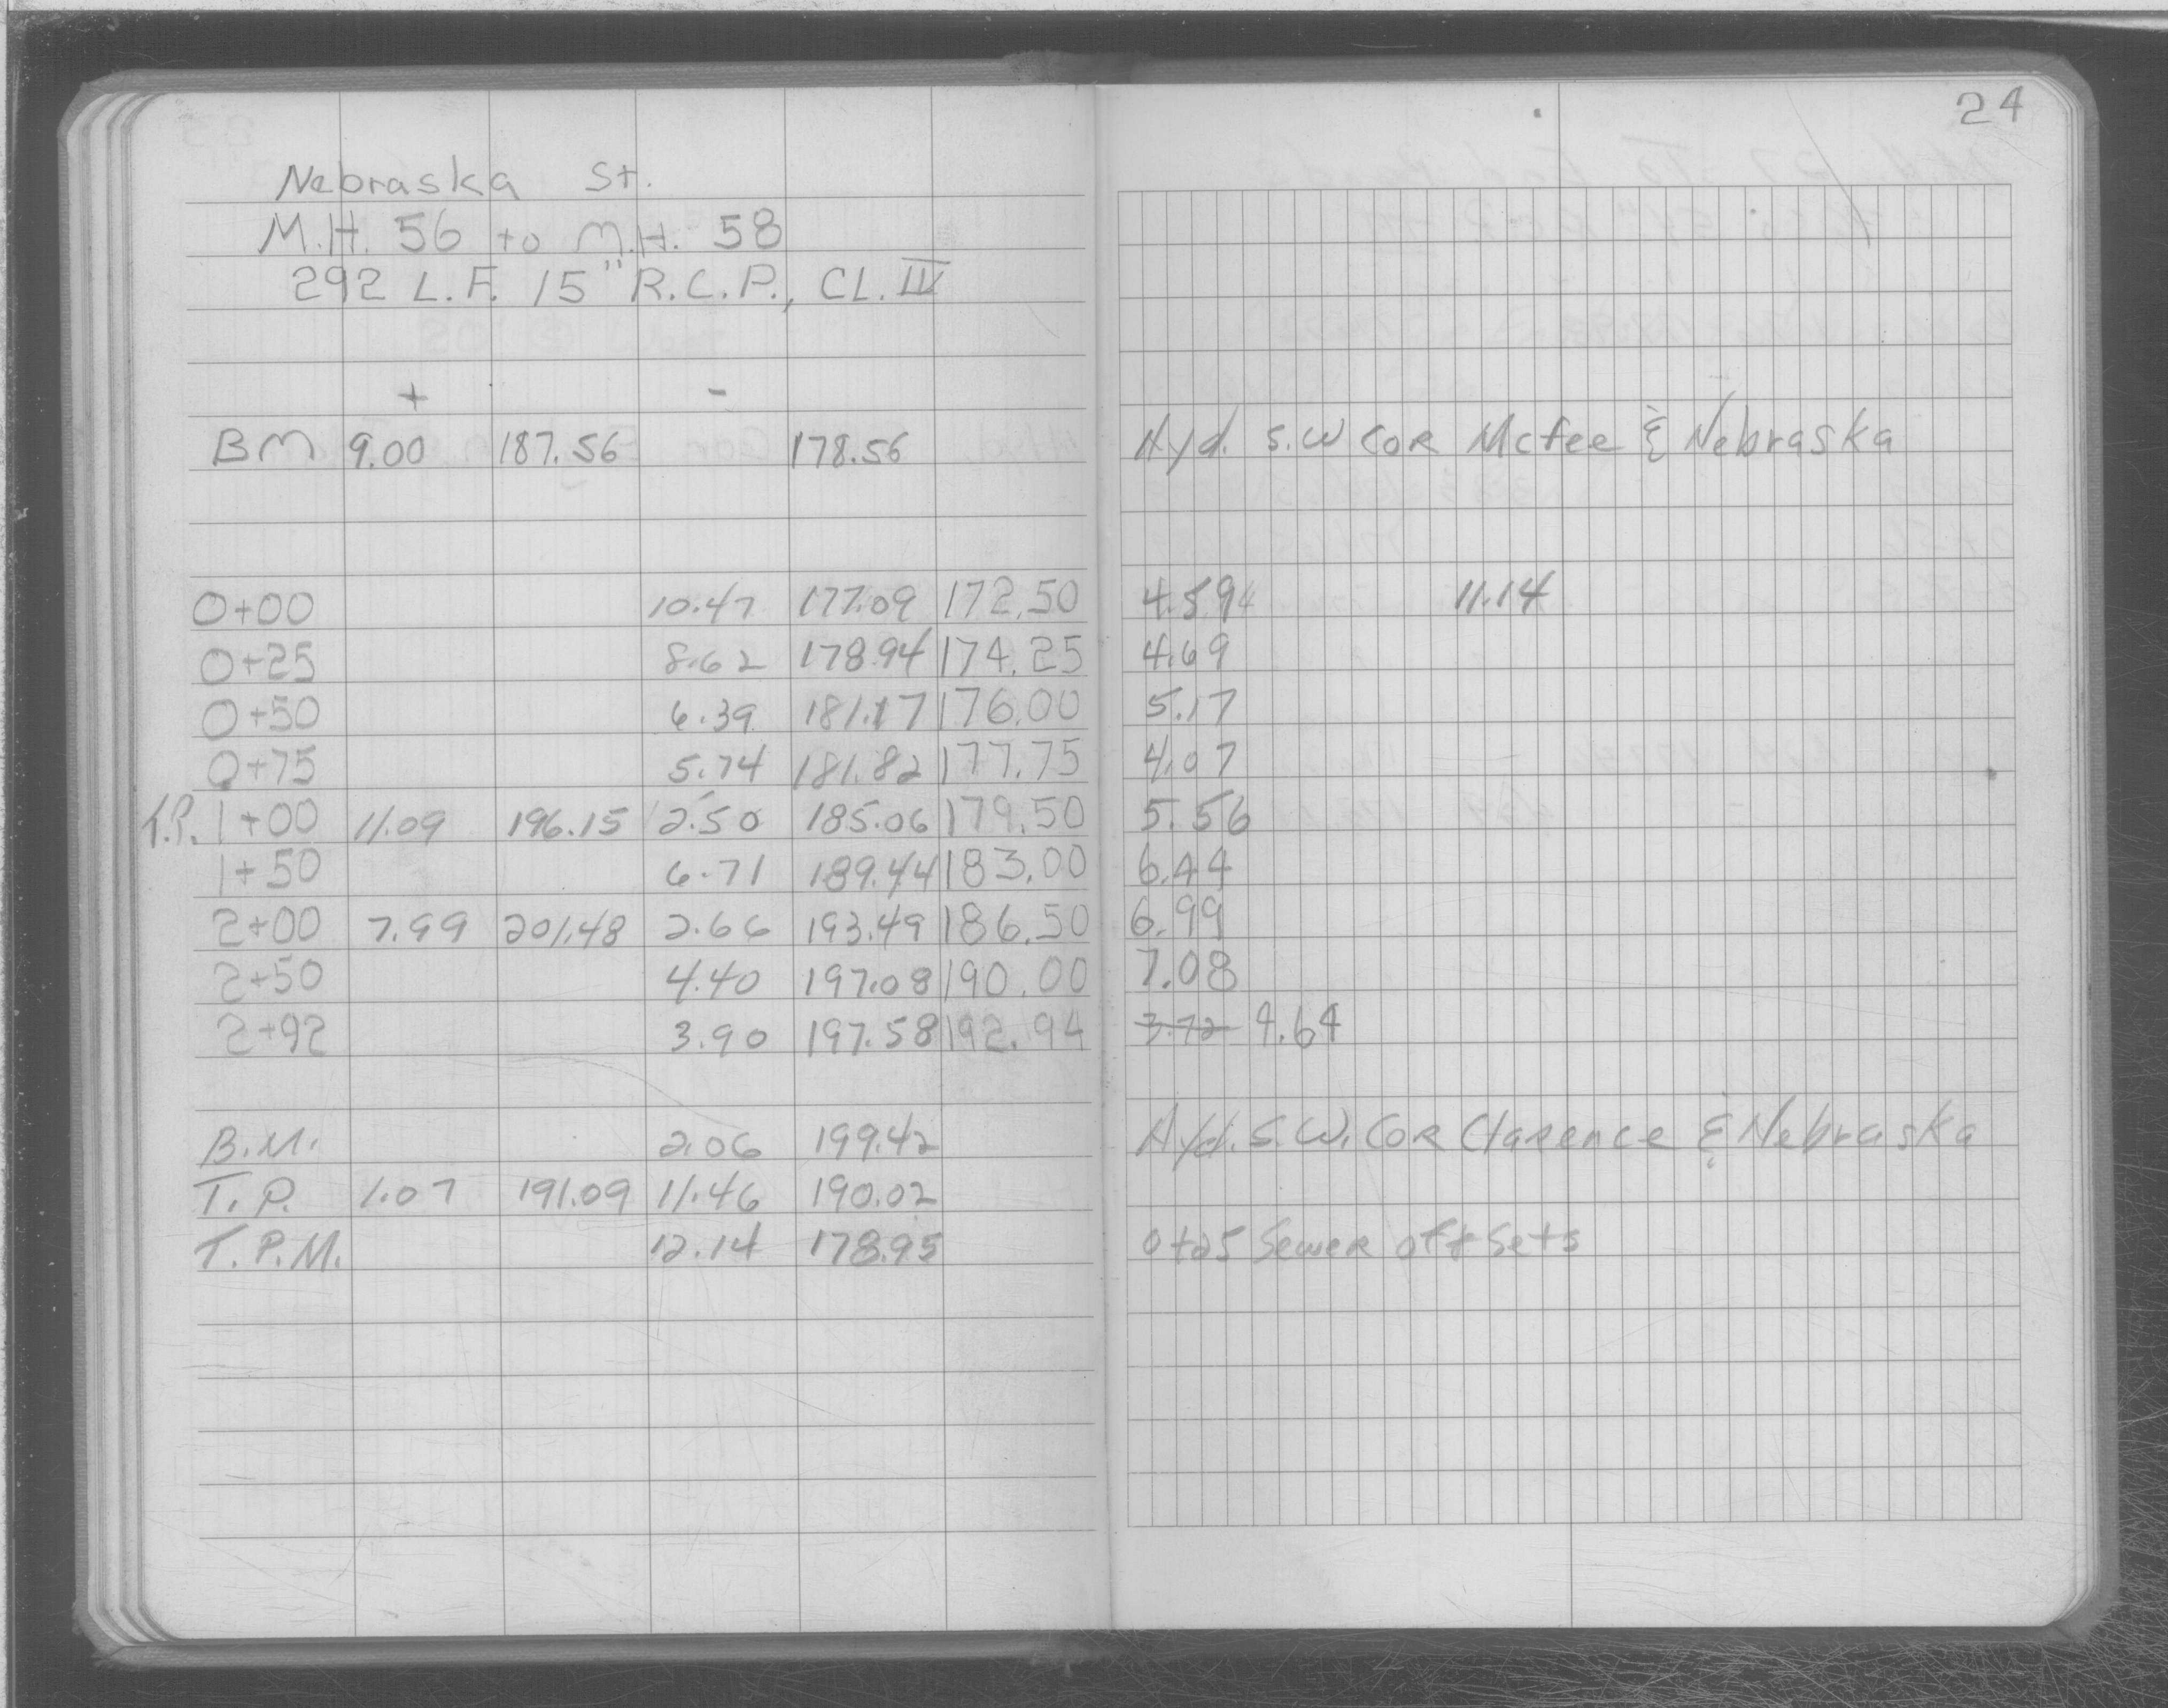 24
Nebraska St.
M.H. 56 to M.H. 58
292 L.F. 15" R.C.P., CL. IV
+ -
BM 9.00 187.56 178.56 Hyd. S.W COR McFee & Nebraska
0+00 10.47 177.09 172.50 4.59 11.14
0+25 8.62 178.94 174.25 4.69
0+50 6.39 181.17 176.00 5.17
0+75 5.74 181.82 177.75 4.07
T.P. 1+00 11.09 196.15 2.50 185.06 179.50 5.56
1+50 6.71 189.44 183.00 6.44
2+00 7.99 201.48 2.66 193.49 186.50 6.99
2+50 4.40 197.08 190.00 7.08
2+92 3.90 197.58 192.94 3.72 4.64
B.M. 2.06 199.42 Hyd. S.W. COR Clarence & Nebraska
T.P. 1.07 191.09 11.46 190.02
T.P.M. 12.14 178.95 0+25 Sewer off Sets